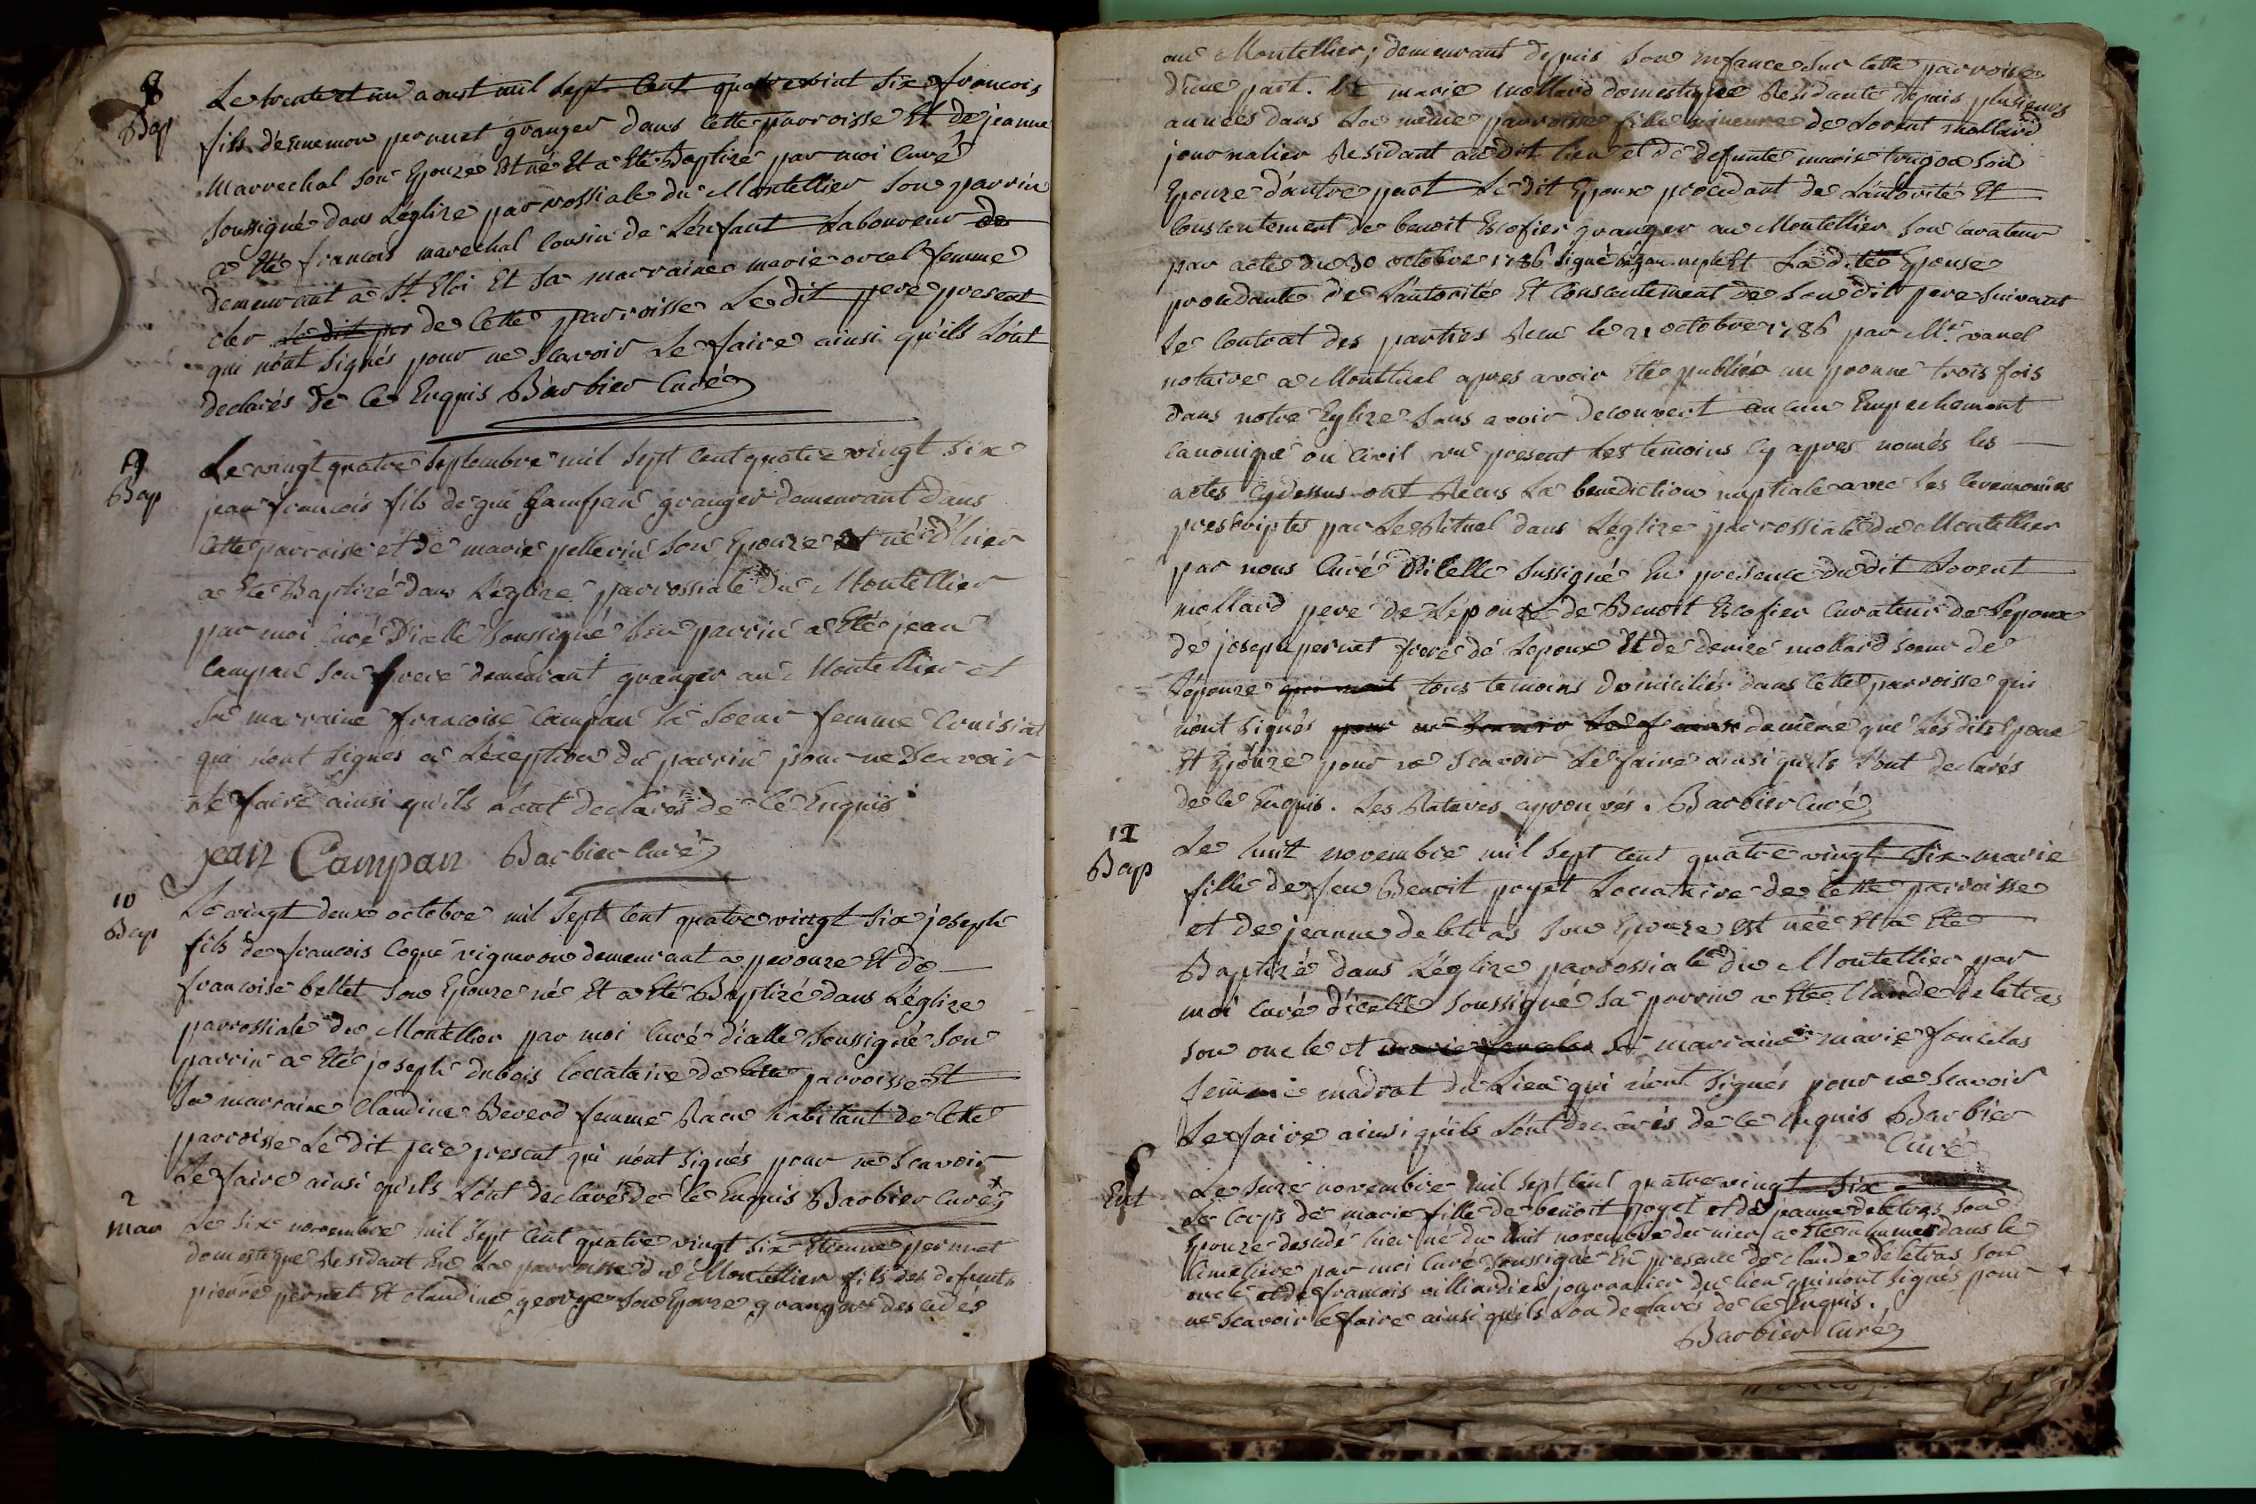 8
Bap
Le trente et un aoust mil sept cent quatre vint six francois
fils d'ennemon pernnet granger dans cette parroisse Et de jeanne
Marrechal son Epouze Est né Et a Eté Baptizé par moi Curé
soussigné dans L'églize parrossiale du Montellier son parrin
a Eté francois marechal cousin de L'enfant Laboureur de
demeurant a St Eloi Et sa marraine marie orcel femme
cler Le dit per de cette parroisse Le dit pere present
qui n'ont signés pour ne scavoir Le faire ainsi qu'ils L'ont
declarés de ce Enquis Barbier Curé
9
Bap
Le vingt quatre septembre mil sept cent quatre vingt six
jean francois fils de gui Campan granger demeurant dans
cette parroisse et de marie pellerin son Epouze Est né d'hier
a Eté Baptizé dans L'eglize parrossiale du Montellier
par moi Curé D'icelle soussigné son parrin a Eté jean
Campan son frere demeurant granger au Montellier et
sa marraine francoise Campan sa soeur femme Cruisiat
qui n'ont signés a L'exeption du parrin pour ne scavoir
Le faire ainsi qu'ils L'ont declarés de ce Enquis
jean Campan Barbier Curé
10
Bap
Le vingt deux octobre mil sept cent quatre vingt six joseph
fils de francois Coque vigneron demeurant a perouze Et de
francoise bellet son Epouze né Et a Eté Baptizé dans L'églize
parrossiale du Montellier par moi Curé d'icelle soussigné son
parrin a Eté joseph dubois Loccataire de cette parroisse Et
sa marraine Claudine Beverd femme Racu habitant de cette
parroisse Le dit pere present qui n'ont signés pour ne scavoir
Le faire ainsi qu'ils L'ont declarés de ce Enquis Barbier Curé
2
mar
Le six novembre mil sept cent quatre vingt six Etienne pernnet
domestique Residant En La parroisse du Montellier fils des defunts
pierre pernet Et Claudine george son Epouze grangers descedés
au Montellier; demeurant depuis son Enfance sur cette parroisse
d'une part. Et marie mollard domestique Residante depuis plusieurs
années dans La même parroisse fille mineure de Lorent mollard
journalier Residant au dit lieu et de defunte marie trigon son
Epouze d'autre part Le dit Epoux procedant de L'autorité Et
Consentement de benoit Escofier granger au Montellier son Curateur
par acte du 30 octobre 1786 signé Et La dite Epouse
procedante de L'autorité Et Consentement de son dit pere suivant
Le Contrat des parties Recu le 21 octobre 1786 par Me. vanel
notaire a Montluel apres avoir Eté publiés au prone trois fois
dans notre Eglize sans avoir decouvert aucun Empechement
canonique ou Civil en present des temoins Cy apres només les
actes Cydessus ont Recus La benediction nuptiale avec Les Ceremonies
prescriptes par Le Rituel dans L'églize parrossiale du Montellier
par nous Curé D'icelle sussigné En presence du dit Lorent
mollard pere de L'epouze de Benoit Escofier Curateur de L'epoux
de joseph pernet frere de L'epoux Et de denize mollard soeur de
L'épouze qui nont tous temoins domiciliés dans cette parroisse qui
n'ont signés pour ne scavoir Le f de même que Les dits Epoux
Et Epouze pour ne scavoir Le faire ainsi qu'ils L'ont declarés
de ce Enquis. Les Ratures approuvés. Barbier Curé
11
Bap
Le huit novembre mil sept cent quatre vingt six marie
fille de feu Benoit poyet Locataire de cette parroisse
et de jeanne deletras son Epouze est née Et a Eté
Baptizé dans L'églize parrossiale du Montellier par
moi Curé d'icelle soussigné sa parrin a Eté Claude deletras
son oncle et marie sa marraine marie fonclas
femme madrat du Lieu qui n'ont signés pour ne scavoir
Le faire ainsi qu'ils L'ont declarés de ce Enquis Barbier
Curé
Ent
Le onze novembre mil sept cent quatre vingt six
Le Corps de marie fille de benoit poyet et de jeanne deletras son
Epouze descedé hier né du huit novembre dernier a Eté inhumé dans le
Cimetiere par moi Curé soussigné En presence de claude deletras son
oncle et de francois villiardier journalier du lieu qui nont signés pour
ne scavoir le faire ainsi qu'ils L'on declarés de ce Enquis.
Barbier Curé